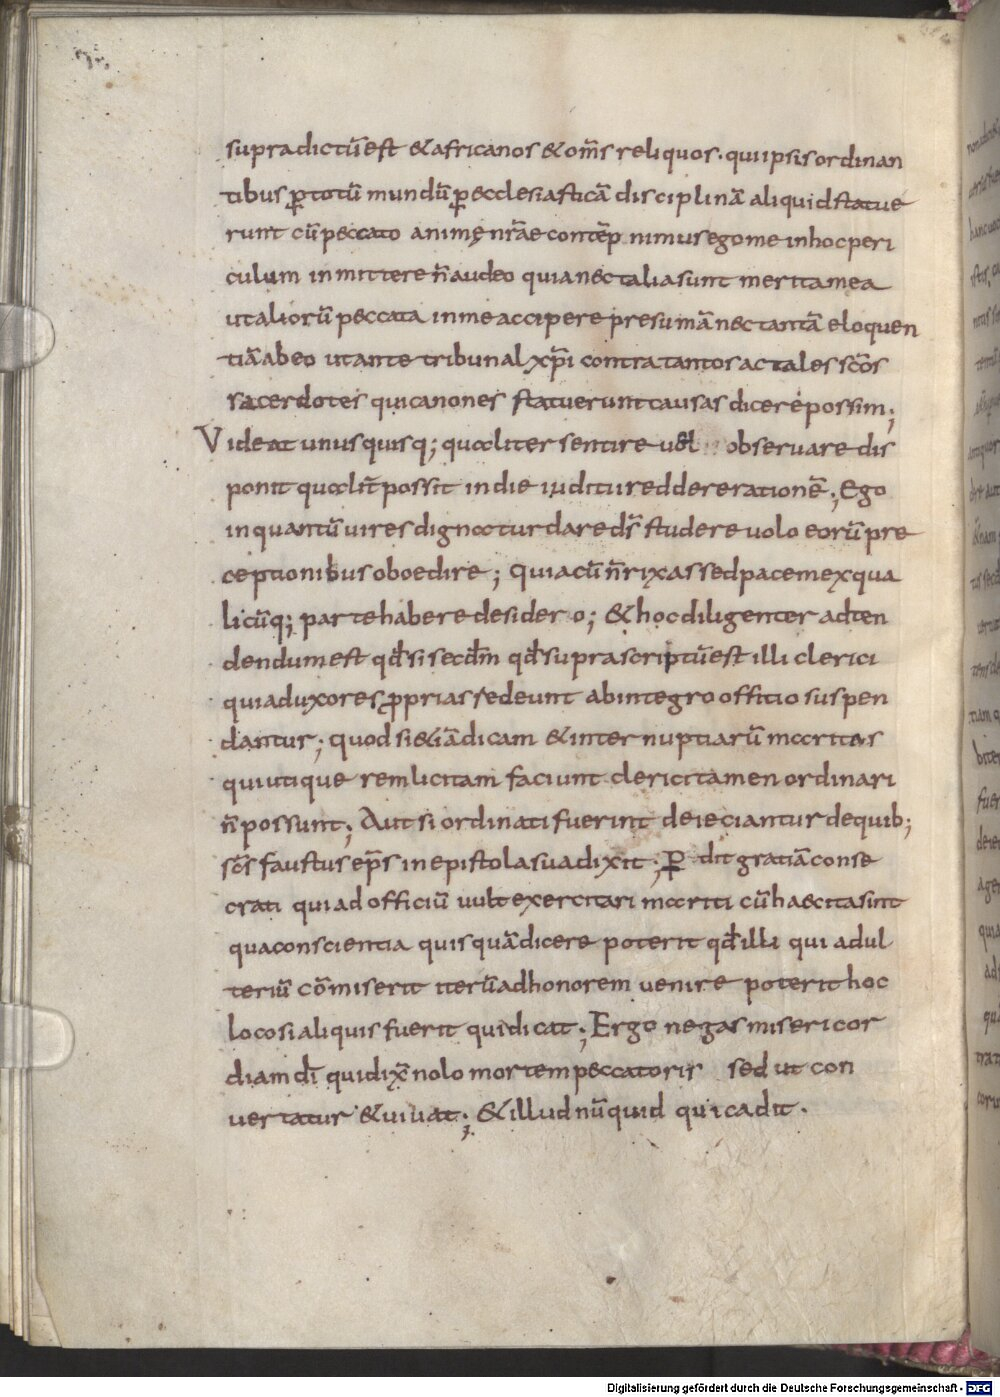 supradictũ est & africanos & om̃s reliquos. qui ipsis ordinan
tibus p̲ totũ mundũ p̲ ecclesiasticã disciplinã aliquid statue
runt cũ peccato animę nr̃ae contẽp nimus ego me in hoc peri
culum inmittere ñ audeo quia nec talia sunt merita mea
ut aliorũ peccata in me accipere presumã nec tantã eloquen
tiã abeo ut ante tribunal xp̃i contra tantos ac tales sc̃os
sacerdotes qui canones statuerunt causas dicere possim;
Videat unusquisq; qualiter sentire uel observare dis
ponit qualit̃ possit in die iuditii reddere rationẽ; Ego
in quantũ vires dignatur dare ds̃ studere volo eorũ pre
ceptionibus oboedire; quia cũ ñ rixas sed pacem ex qua
licũq; parte habere desidero; & hoc diligenter adten
dendum est qđ si secđm qđ suprascriptũ est illi clerici
qui ad uxores proprias redeunt ab integro offitio suspen
dantur; quod si &iã dicam & internuptiarũ maritas
qui utique rem licitam faciunt clerici tamen ordinari
ñ possunt; Aut si ordinati fuerint deieciantur de quib;
sc̃s faustus ep̃s in epistola sua dixit; p̲dit gratiã conse
crati qui ad officiũ uult exercitari mariti cũ haec ita sint
qua conscientia quisquã dicere poterit qđ illi qui adul
teriũ cõmiserit iterũ ad honorem venire poterit hoc
loco si aliquis fuerit qui dicat; Ergo negas misericor
diam dĩ qui dix̃ nolo mortem peccatoris sed ut con
vertatur & vivat; & illud nũquid qui cadit.
Digitalisierung gefördert durch die Deutsche Forschungsgemeinschaft - DFG